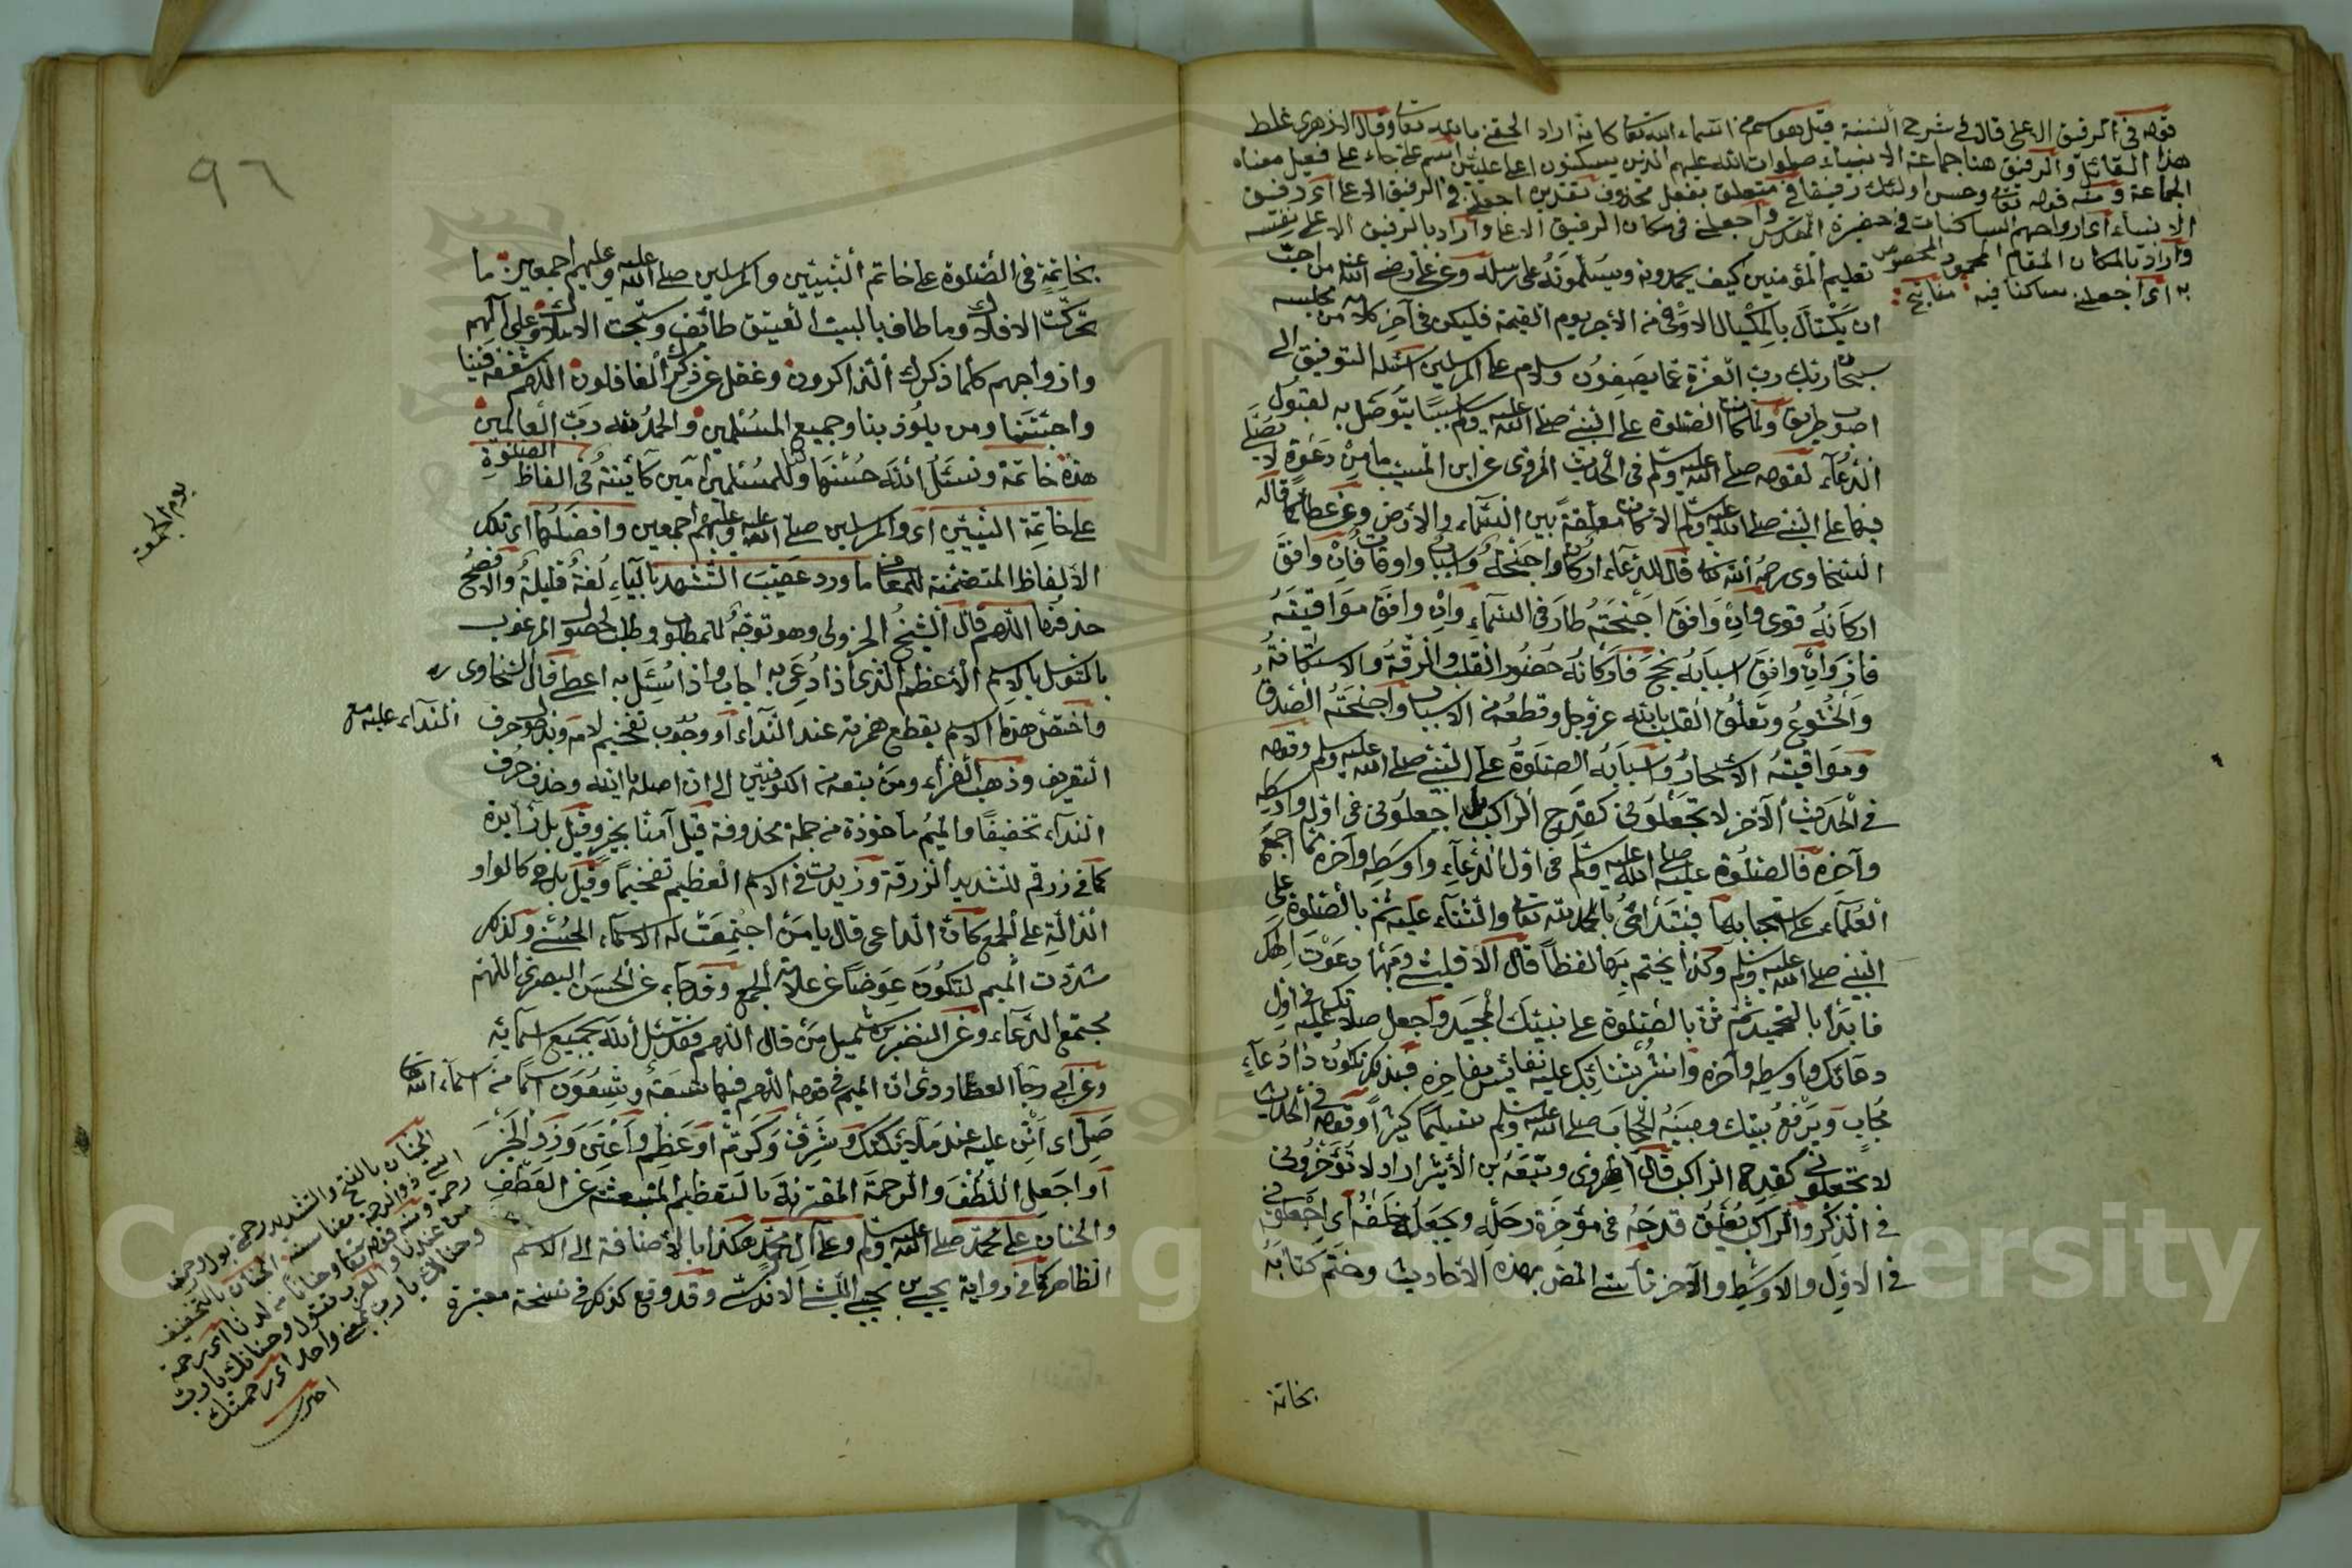 قوله في الرفيق الاعلى قال في شرح السنة قيل هو اسم من اسماء الله تعالى كانه اراد الحقني بالله تعالى وقال الازهري غلط
هذا القائل والرفيق هنا جماعة الانبياء صلوات الله عليهم الذين يسكنون اعلى عليين اسم جاء على فعيل معناه
الجماعة ومنه قوله تعالى وحسن اولئك رفيقا في متعلق بفعل محذوف تقديره اجعلني في الرفيق الاعلى اي رفيق
الانبياء اي ارواحهم الساكنات في حضرة القدس واجعلني في مكان الرفيق الاعلى واراد بالرفيق الاعلى نفسه
واراد بالمكان المقام المحمود المخصوص
به اي اجعلني ساكنا فيه مفاتيح
تعليم المؤمنين كيف يحمدونه ويسلمونه على رسله وعن علي رضي الله عنه من احب
ان يكتال بالمكيال الاوفى من الأجر يوم القيمة فليكن في آخر كلامه من مجلسه
سبحان ربك رب العزة عما يصفون وسلام على المرسلين اسئله التوفيق الى
اصوب طريق ولما كان الصلوة على النبي صلى الله عليه وسلم سببا يتوصل به لقبول
الدعآء لقوله صلى الله عليه وسلم في الحديث المروى عن ابن المسيب ما من دعوة لا يصلى
فيها على النبي صلى الله عليه وسلم الا كانت معلقة بين السماء والأرض وعن عطا كما قاله
السخاوى رحمه الله تعالى قال للدعآء اركان واجنحة واسباب واوقات فان وافق
اركانه قوى وان وافق اجنحته طار في السمآء وان وافق مواقيته
فاز وان وافق اسبابه نجح فاركانه حضور القلب والرقة والاستكانة
والخشوع وتعلق القلب بالله عز وجل وقطعه من الاسباب واجنحته الصدق
ومواقيته الاسحار واسبابه الصلوة على النبي صلى الله عليه وسلم وقوله
في الحديث الآخر لا تجعلوني كقدح الراكب اجعلوني في اوله واوسطه
وآخره فالصلوة عليه صلى الله عليه وسلم في اول الدعآء واوسطه وآخره مما اجمع
العلمآء على استحبابها فيبتدأ بالحمد لله تعالى والثنآء عليه ثم بالصلوة على
النبي صلى الله عليه وسلم وكذا يختم بهما لفظا قال الاقليشي ومهما دعوت الهك
فابدأ بالتحميد ثم ثن بالصلوة على نبيك المجيد واجعل صلاتك عليه في اول
دعآئك واوسطه وآخره وانشر بثنائك عليه نفائس مفاخره فبذلك تكون ذا دعآء
مجاب ويرفع بينك وبينه الحجاب صلى الله عليه وسلم تسليما كثيرا وقوله في الحديث
لا تجعلوني كقدح الراكب قال الهروى وتبعه ابن الأثير اراد لا تؤخروني
في الذكر والراكب يعلق قدحه في مؤخرة رحله ويجعله خلفه اي اجعلوني في
في الاول والاوسط والآخر تأسى المص بهذه الاحاديث وختم كتابه
بخاتمة
٩٦
بخاتمة في الصلوة على خاتم النبيين والمرسلين صلى الله عليه وعليهم اجمعين ما
تحركت الافلاك وما طاف بالبيت العتيق طائف وسبحت الاملاك وعلى آلهم
وازواجهم كلما ذكرك الذاكرون وغفل عن ذكرك الغافلون اللهم شفعه فينا
واجبتنا ومن يلوذ بنا وجميع المسلمين والحمد لله رب العالمين
هذه خاتمة ونسئل الله حسنها لنا وللمسلمين آمين كآئنة في الفاظ الصلوة
على خاتمة النبيين اي والمرسلين صلى الله عليه وعليهم اجمعين وافضلها اي تلك
الألفاظ المتضمنة للمعاني ما ورد عقيب التشهد بالياء لغة قليلة والافصح
حذفها اللهم قال الشيخ الحزولى وهو توجه للمطلوب وطلب لحصول المرغوب
بالتوسل بالاسم الأعظم الذي اذا دعي به اجاب واذا سئل به اعطى قال السخاوى ره
واختص هذا الاسم بقطع همزته عند النداء او وجوب تفخيم لامه وبدخول حرف
النداء عليه مع
التعريف وذهب الفراء ومن تبعه من الكوفيين الى ان اصله يا الله وحذف حرف
الندآء تخفيفا والميم مأخوذة من جملة محذوفة قيل آمنا بخير وقيل بل زايدة
كما في زرقم للشديد الزرقة وزيدت في الاسم العظيم تفخيما وقيل بل هي كالواو
الدالة على الجمع كأن الداعي قال يا من اجتمعت له الاسماء الحسنى ولذلك
شددت الميم لتكون عوضا عن علامة الجمع وقد جاء عن الحسن البصرى اللهم
مجتمع الدعآء وعن النضر بن شميل من قال اللهم فقد سئل الله بجميع اسمآئه
وعن ابي رجآ العطاردى ان الميم في قوله اللهم فيها تسعة وتسعون اسما من اسمآء الله تعالى
صل اي اثن عليه عند ملآئكتك وشرف وكرمه او عظم واعتن وزد الخير
او اجعل اللطف والرحمة المقترنة بالتعظيم المنبعثة عن العطف
والحنان على محمد صلى الله عليه وسلم وعلى آل محمد هكذا بالأضافة الى الاسم
الظاهر كما في رواية يحيى بن يحيى الليثى الاندلسى وقد وقع كذلك في نسخة معتبرة
يوم الجمعة
الحنان بالفتح والتشديد رحمة
رحمة ومنه قوله تعالى وحنانا من لدنا اي رحمة
من عندنا والعرب تقول وحنانك يا رب
وحنانيك يا رب بمعنى واحد اي رحمتك
اختري
Copyright © King Saud University